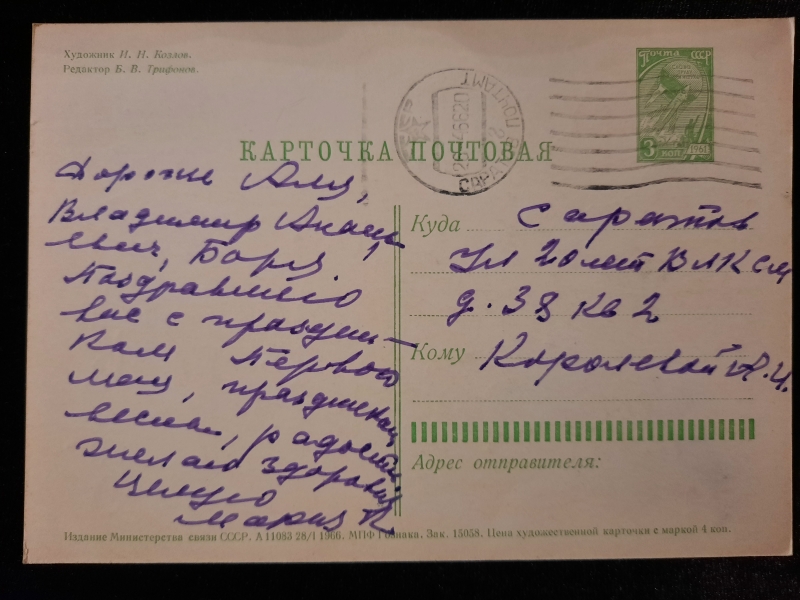 Художник И. Н. Козлов.
Редактор Б. В. Трифонов.
Почта СССР
3 коп.
1961
ПОЧТАМТ
КАРТОЧКА ПОЧТОВАЯ
Дорогие Аля,
Владимир
евич, Боря
Поздравляю
вас с праздни-
ком Первого
мая, праздником
весны, радости
желаю здоровия
Целую
Мария К.
Куда Саратов
Ул 20 лет ВЛКСМ
д. 38 кв 2
Кому Королевой А.И.
Адрес отправителя:
Издание Министерства связи СССР. А 11083 28/I 1966. МПФ Гознака. Зак. 15058. Цена художественной карточки с маркой 4 коп.